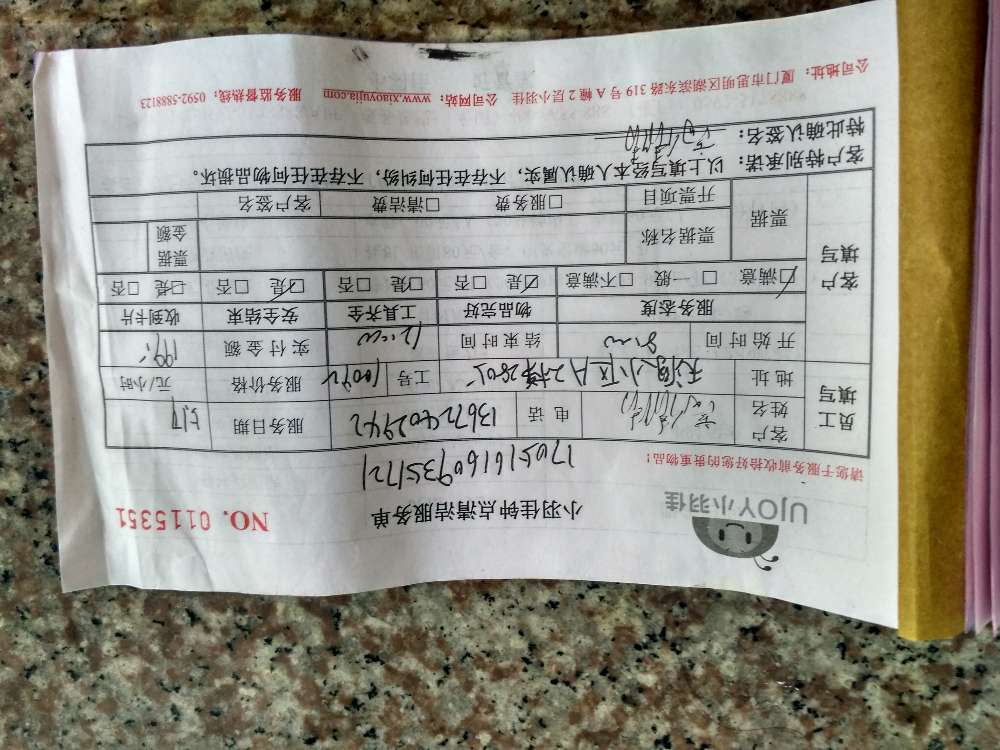 UJOY小羽佳
小羽佳钟点清洁服务单
NO. 0115351
请您于服务前收拾好您的贵重物品!
17051616093551721
员工填写
客户姓名
电话 13672402942
服务日期 5.17
地址 天湖小区A2梯2801
工号
服务价格 元/小时
开始时间 8:00
结束时间 12:00
实付金额 199
客户填写
服务态度 物品完好 工具齐全 安全结束 收到卡片
☑满意 □一般 □不满意 ☑是 □否 ☑是 □否 ☑是 □否 ☑是 □否
票据 票据名称 票据金额
开票项目 □服务费 □清洁费 客户签名
客户特别承诺:以上填写经本人确认属实,不存在任何纠纷,不存在任何物品损坏。
特此确认签名:
公司地址:厦门市思明区湖滨东路319号A幢2层小羽佳 公司网站:www.xiaoyujia.com 服务监督热线:0592-5888123